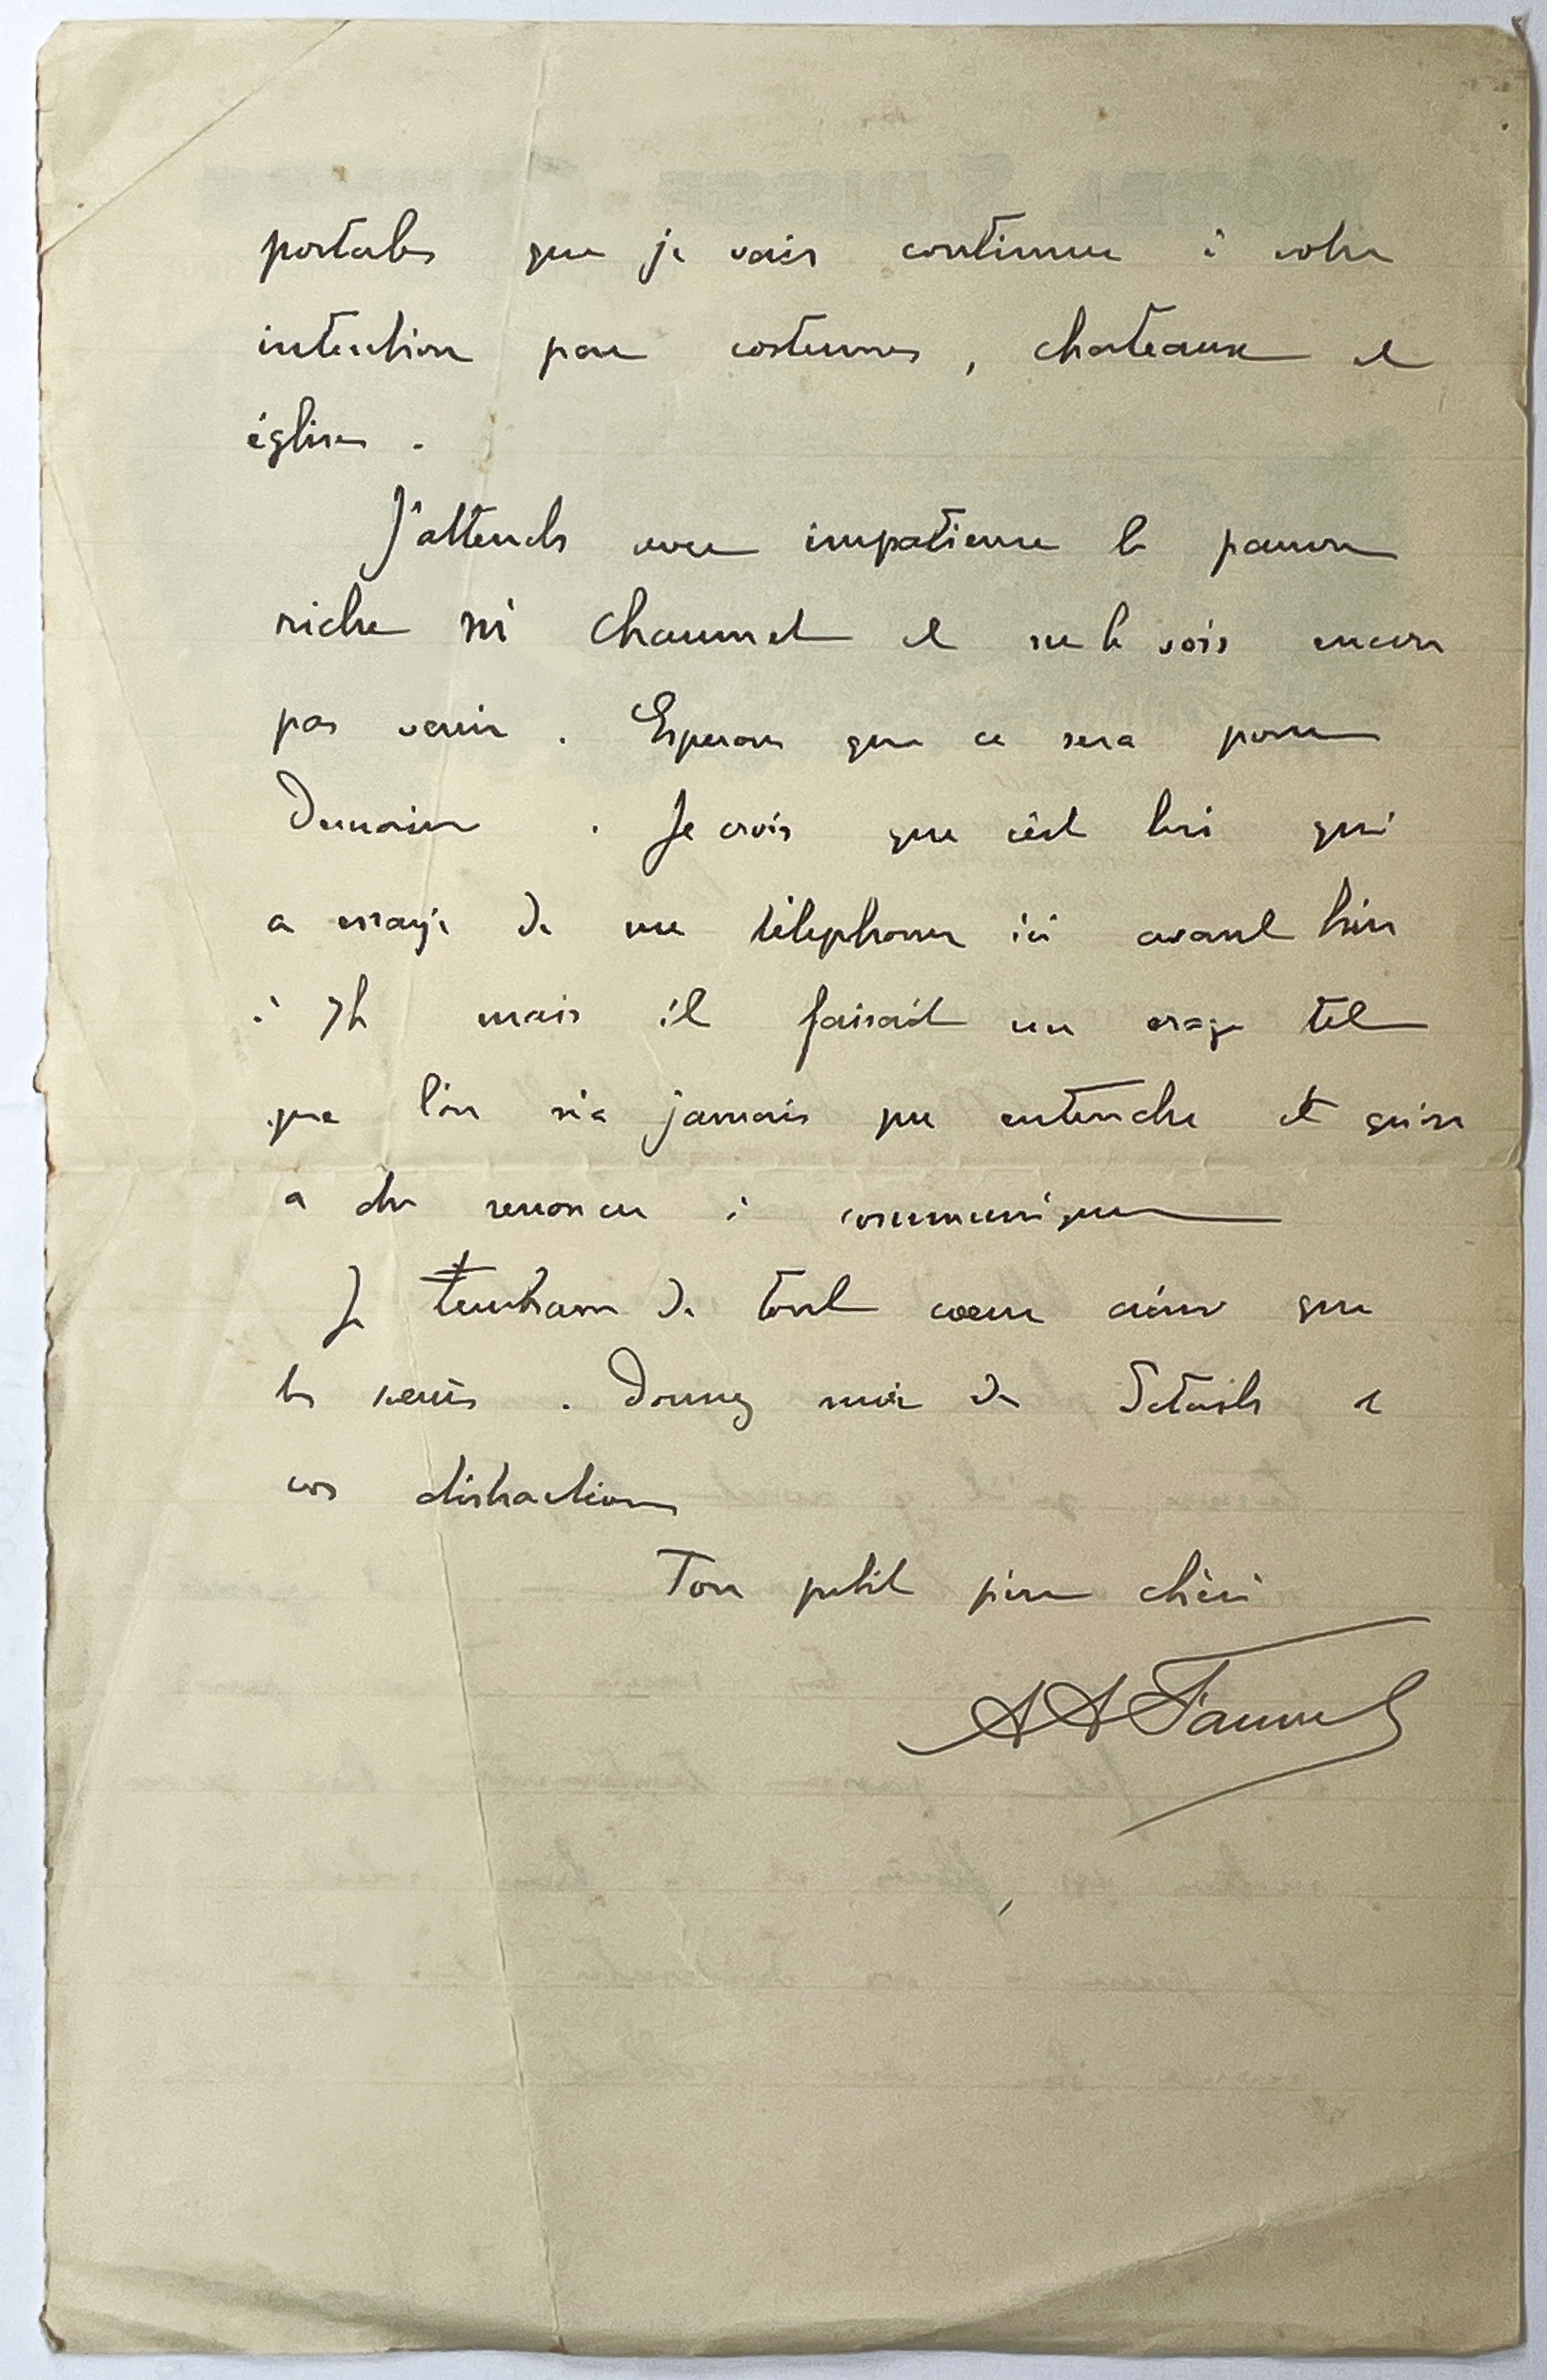 postales que je vais continuer à votre
intention par costumes, chateaux et
églises.
J'attends avec impatience le pauvre
riche Mr Chaumet et ne le vois encore
pas venir. Esperons que ce sera pour
Demain. Je crois que c'est lui qui
a essayé de me téléphoner ici avant hier
à 7h mais il faisait un orage tel
que l'on n'a jamais pu entendre et qu'on
a du renoncer à communiquer
Je t'embrasse de tout coeur ainsi que
les. Donnez moi des Détails et
vos distractions
Ton petit père chéri